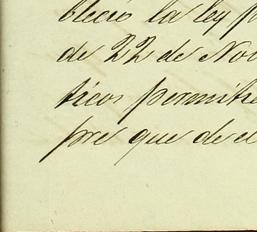 bleció la ley p
de 22 de Nov
ticos permitie
pre que de e